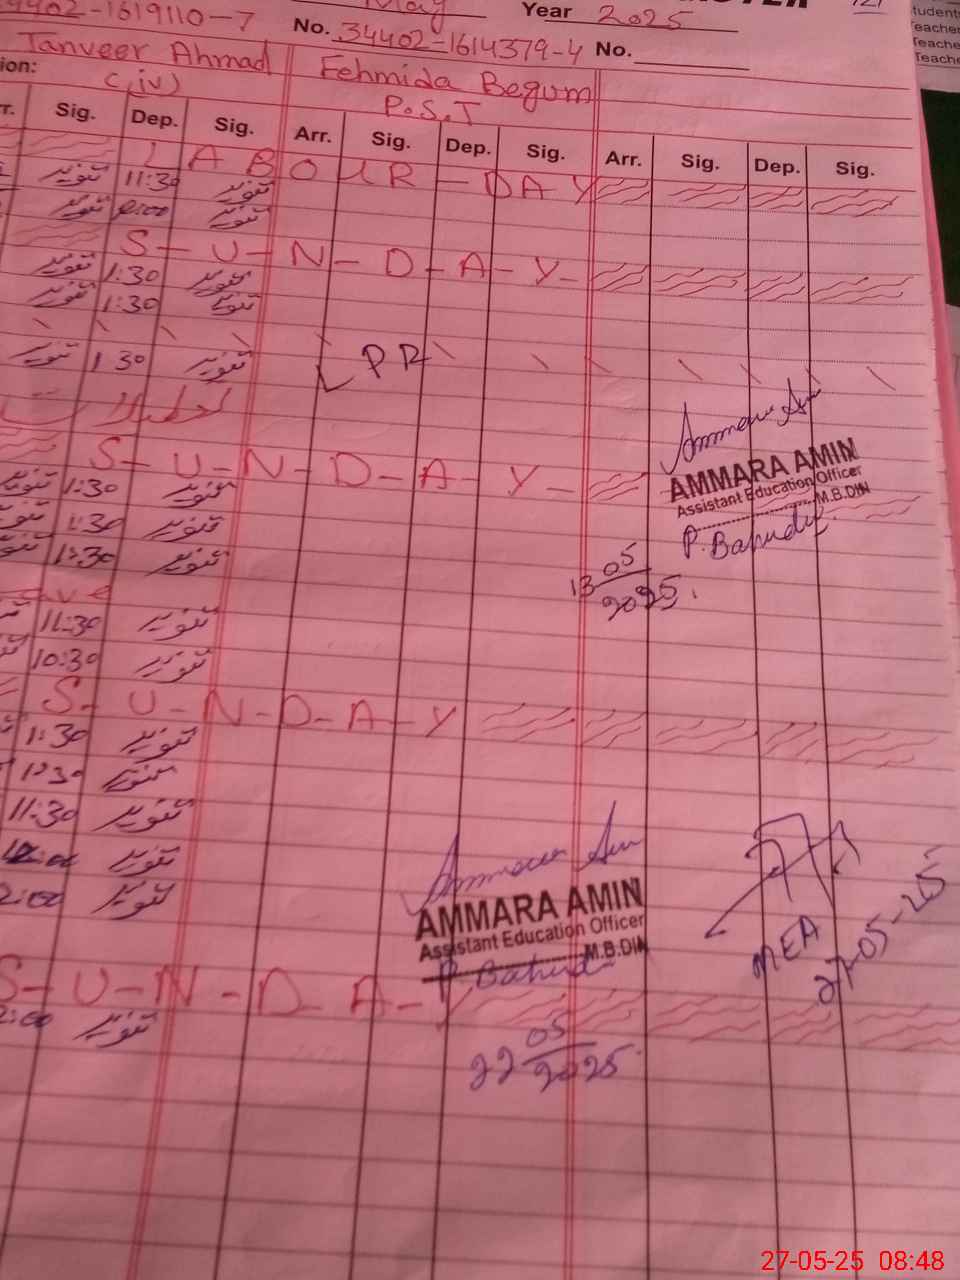 May Year 2025
4402-1619110-7 No. 34402-1614379-4 No.
Tanveer Ahmad Fehmida Begum
ion: C(iv) P.S.T
Sig. Dep. Sig. Arr. Sig. Dep. Sig. Arr. Sig. Dep. Sig.
LABOUR-DAY
تنویر 11:30 تنویر
تنویر تنویر
S-U-N-D-A-Y-
تنویر 1:30 تنویر
تنویر 1:30 تنویر
تنویر 1:30 تنویر PR
S-U-N-D-A-Y-
تنویر 1:30 تنویر
تنویر 1:30 تنویر
تنویر 1:30 تنویر
AMMARA AMIN
Assistant Education Officer
M.B.DIN
13 05 2025
11:30 تنویر
10:30 تنویر
S-U-N-D-A-Y
1:30 تنویر
1:30 تنویر
11:30 تنویر
تنویر
2:00 تنویر
AMMARA AMIN
Assistant Education Officer
M.B.DIN
MEA
27-05-25
S-U-N-D-A-Y
2:00 تنویر
22 05 2025
27-05-25 08:48